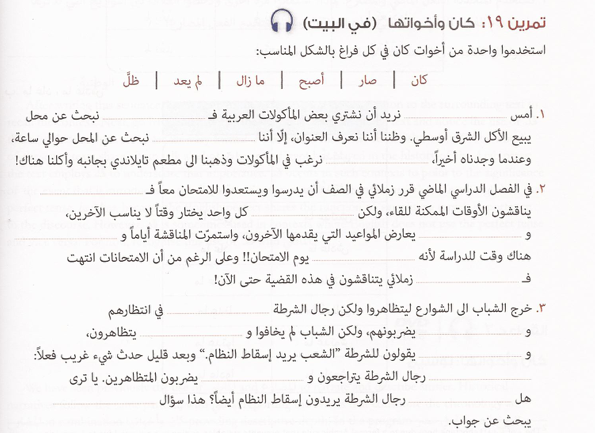 تمرين ١٩: كان وأخواتها (في البيت)
استخدموا واحدة من أخوات كان في كل فراغ بالشكل المناسب:
كان | صار | أصبح | ما زال | لم يعد | ظلَّ
١. أمس ــــــــ نريد أن نشتري بعض المأكولات العربية فـ ــــــــ نبحث عن محل
يبيع الأكل الشرق أوسطي. وظننا أننا نعرف العنوان، إلّا أننا ــــــــ نبحث عن المحل حوالي ساعة،
وعندما وجدناه أخيراً، ــــــــ نرغب في المأكولات وذهبنا الى مطعم تايلاندي بجانبه وأكلنا هناك!
٢. في الفصل الدراسي الماضي قرر زملائي في الصف أن يدرسوا ويستعدوا للامتحان معاً فـ ــــــــ
يناقشون الأوقات الممكنة للقاء، ولكن ــــــــ كل واحد يختار وقتاً لا يناسب الآخرين،
و ــــــــ يعارض المواعيد التي يقدمها الآخرون، واستمرّت المناقشة أياماً و ــــــــ
هناك وقت للدراسة لأنه ــــــــ يوم الامتحان!! وعلى الرغم من أن الامتحانات انتهت
فـ ــــــــ زملائي يتناقشون في هذه القضية حتى الآن!
٣. خرج الشباب الى الشوارع ليتظاهروا ولكن رجال الشرطة ــــــــ في انتظارهم
و ــــــــ يضربونهم، ولكن الشباب لم يخافوا و ــــــــ يتظاهرون،
و ــــــــ يقولون للشرطة "الشعب يريد إسقاط النظام." وبعد قليل حدث شيء غريب فعلاً:
ــــــــ رجال الشرطة يتراجعون و ــــــــ يضربون المتظاهرين. يا ترى
هل ــــــــ رجال الشرطة يريدون إسقاط النظام أيضاً؟ هذا سؤال ــــــــ
يبحث عن جواب.